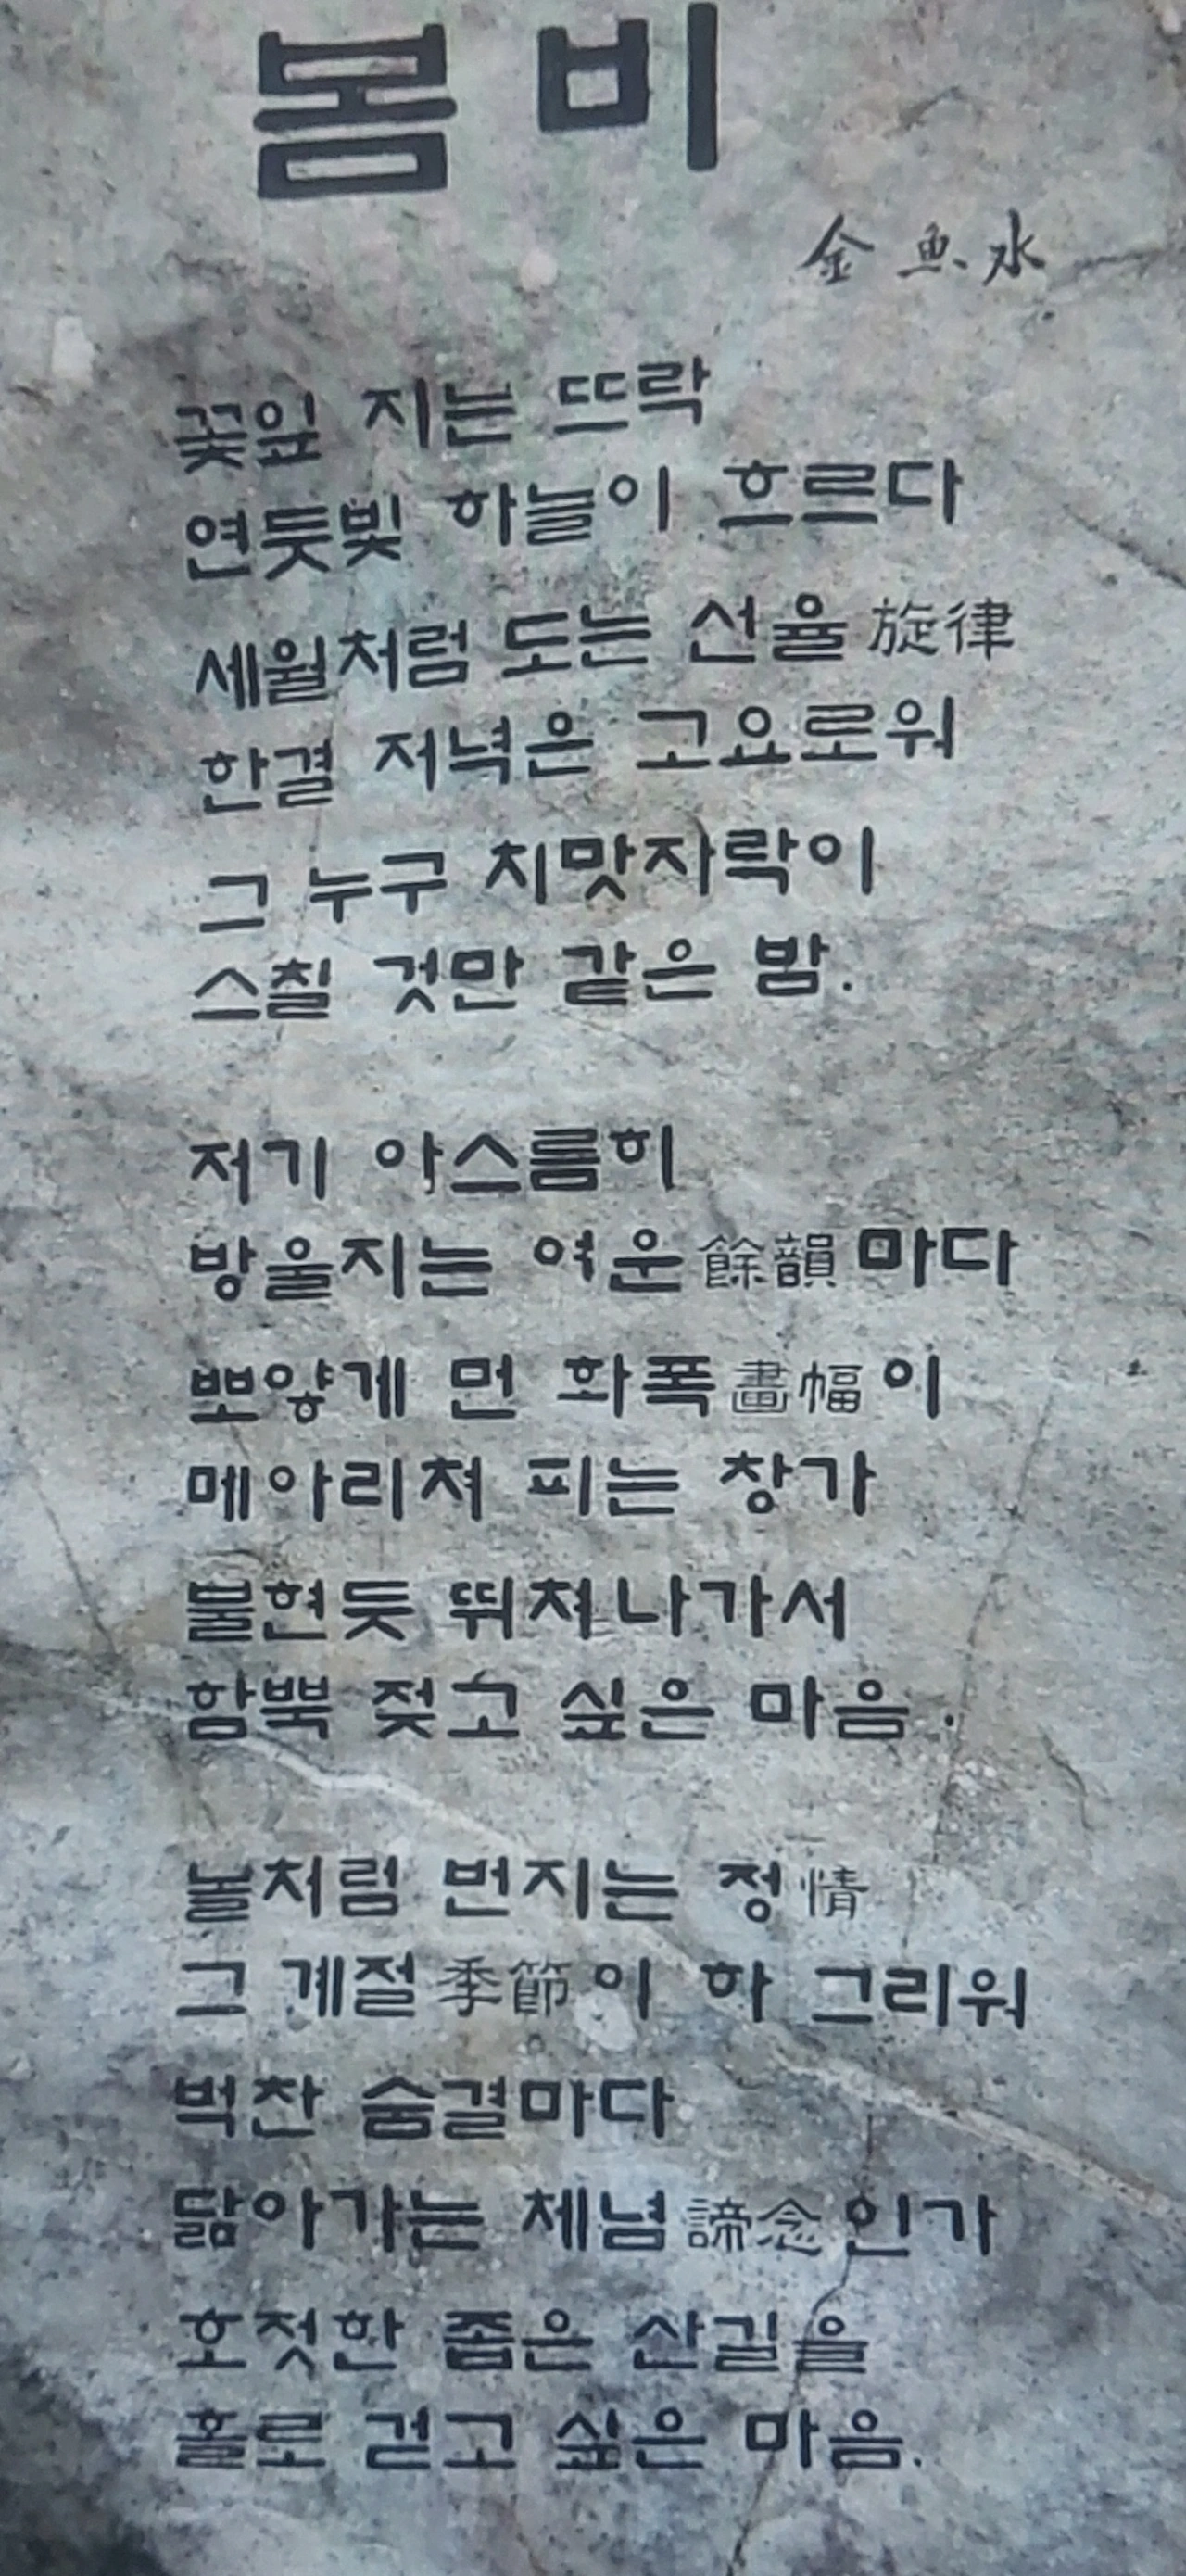 봄비
金魚水
꽃잎 지는 뜨락
연둣빛 하늘이 흐르다
세월처럼 도는 선율旋律
한결 저녁은 고요로워
그 누구 치맛자락이
스칠 것만 같은 밤.
저기 아스름히
방울지는 여운餘韻마다
뽀얗게 먼 화폭畵幅이
메아리쳐 피는 창가
불현듯 뛰쳐나가서
함뿍 젖고 싶은 마음.
놀처럼 번지는 정情
그 계절季節이 하 그리워
벅찬 숨결마다
닮아가는 체념諦念인가
호젓한 좁은 산길을
홀로 걷고 싶은 마음.